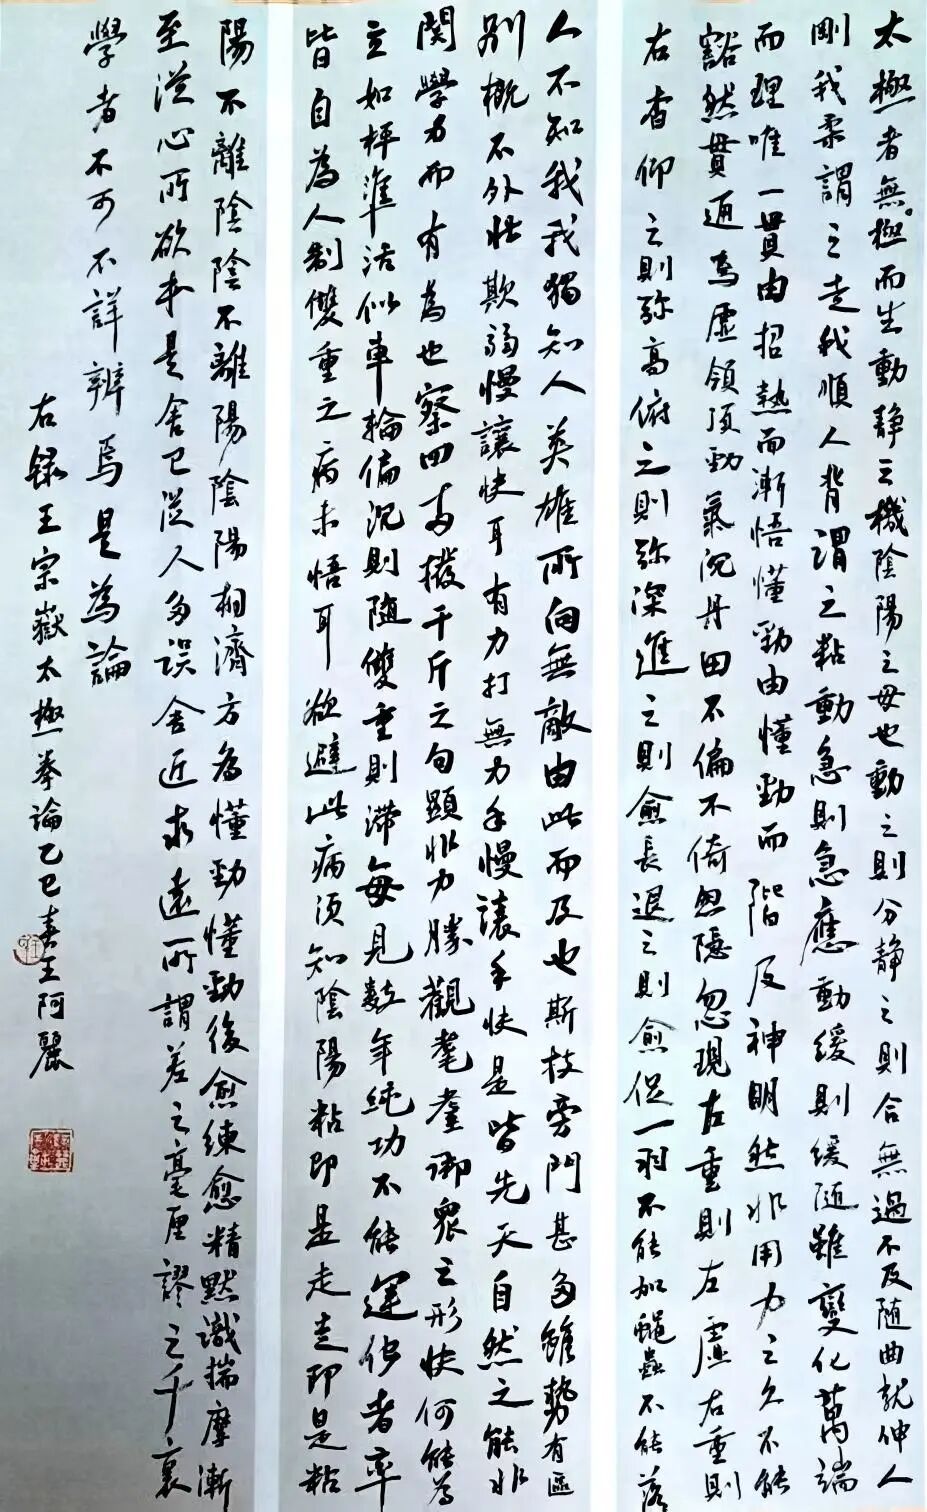 太極者無極而生動静之機陰陽之母也動之則分静之則合無過不及随曲就伸人
剛我柔謂之走我順人背謂之粘動急則急應動緩則緩随雖變化萬端
而理唯一貫由招熱而漸悟懂勁由懂勁而階及神明然非用力之久不能
豁然貫通焉虚領頂勁氣沉丹田不偏不倚忽隱忽現左重則左虚右重則
右杳仰之則弥高俯之則弥深進之則愈長退之則愈促一羽不能加蠅蟲不能落
人不知我我獨知人英雄所向無敵由此而及也斯技旁門甚多雖勢有區
别概不外壮欺弱慢讓快耳有力打無力手慢讓手快是皆先天自然之能非
関學力而有為也察四两撥千斤之句顯非力勝觀耄耋御衆之形快何能為
立如枰準活似車輪偏沉則随雙重則滞每見数年纯功不能運化者率
皆自為人制雙重之病未悟耳欲避此病须知陰陽粘即是走走即是粘
陽不離陰陰不離陽陰陽相濟方為懂勁懂勁後愈練愈精默識揣摩漸
至從心所欲本是舍已從人多误舍近求遠所謂差之毫厘謬之千裏
學者不可不詳辨焉是為論
右録王宗嶽太極拳論乙巳春王阿麗